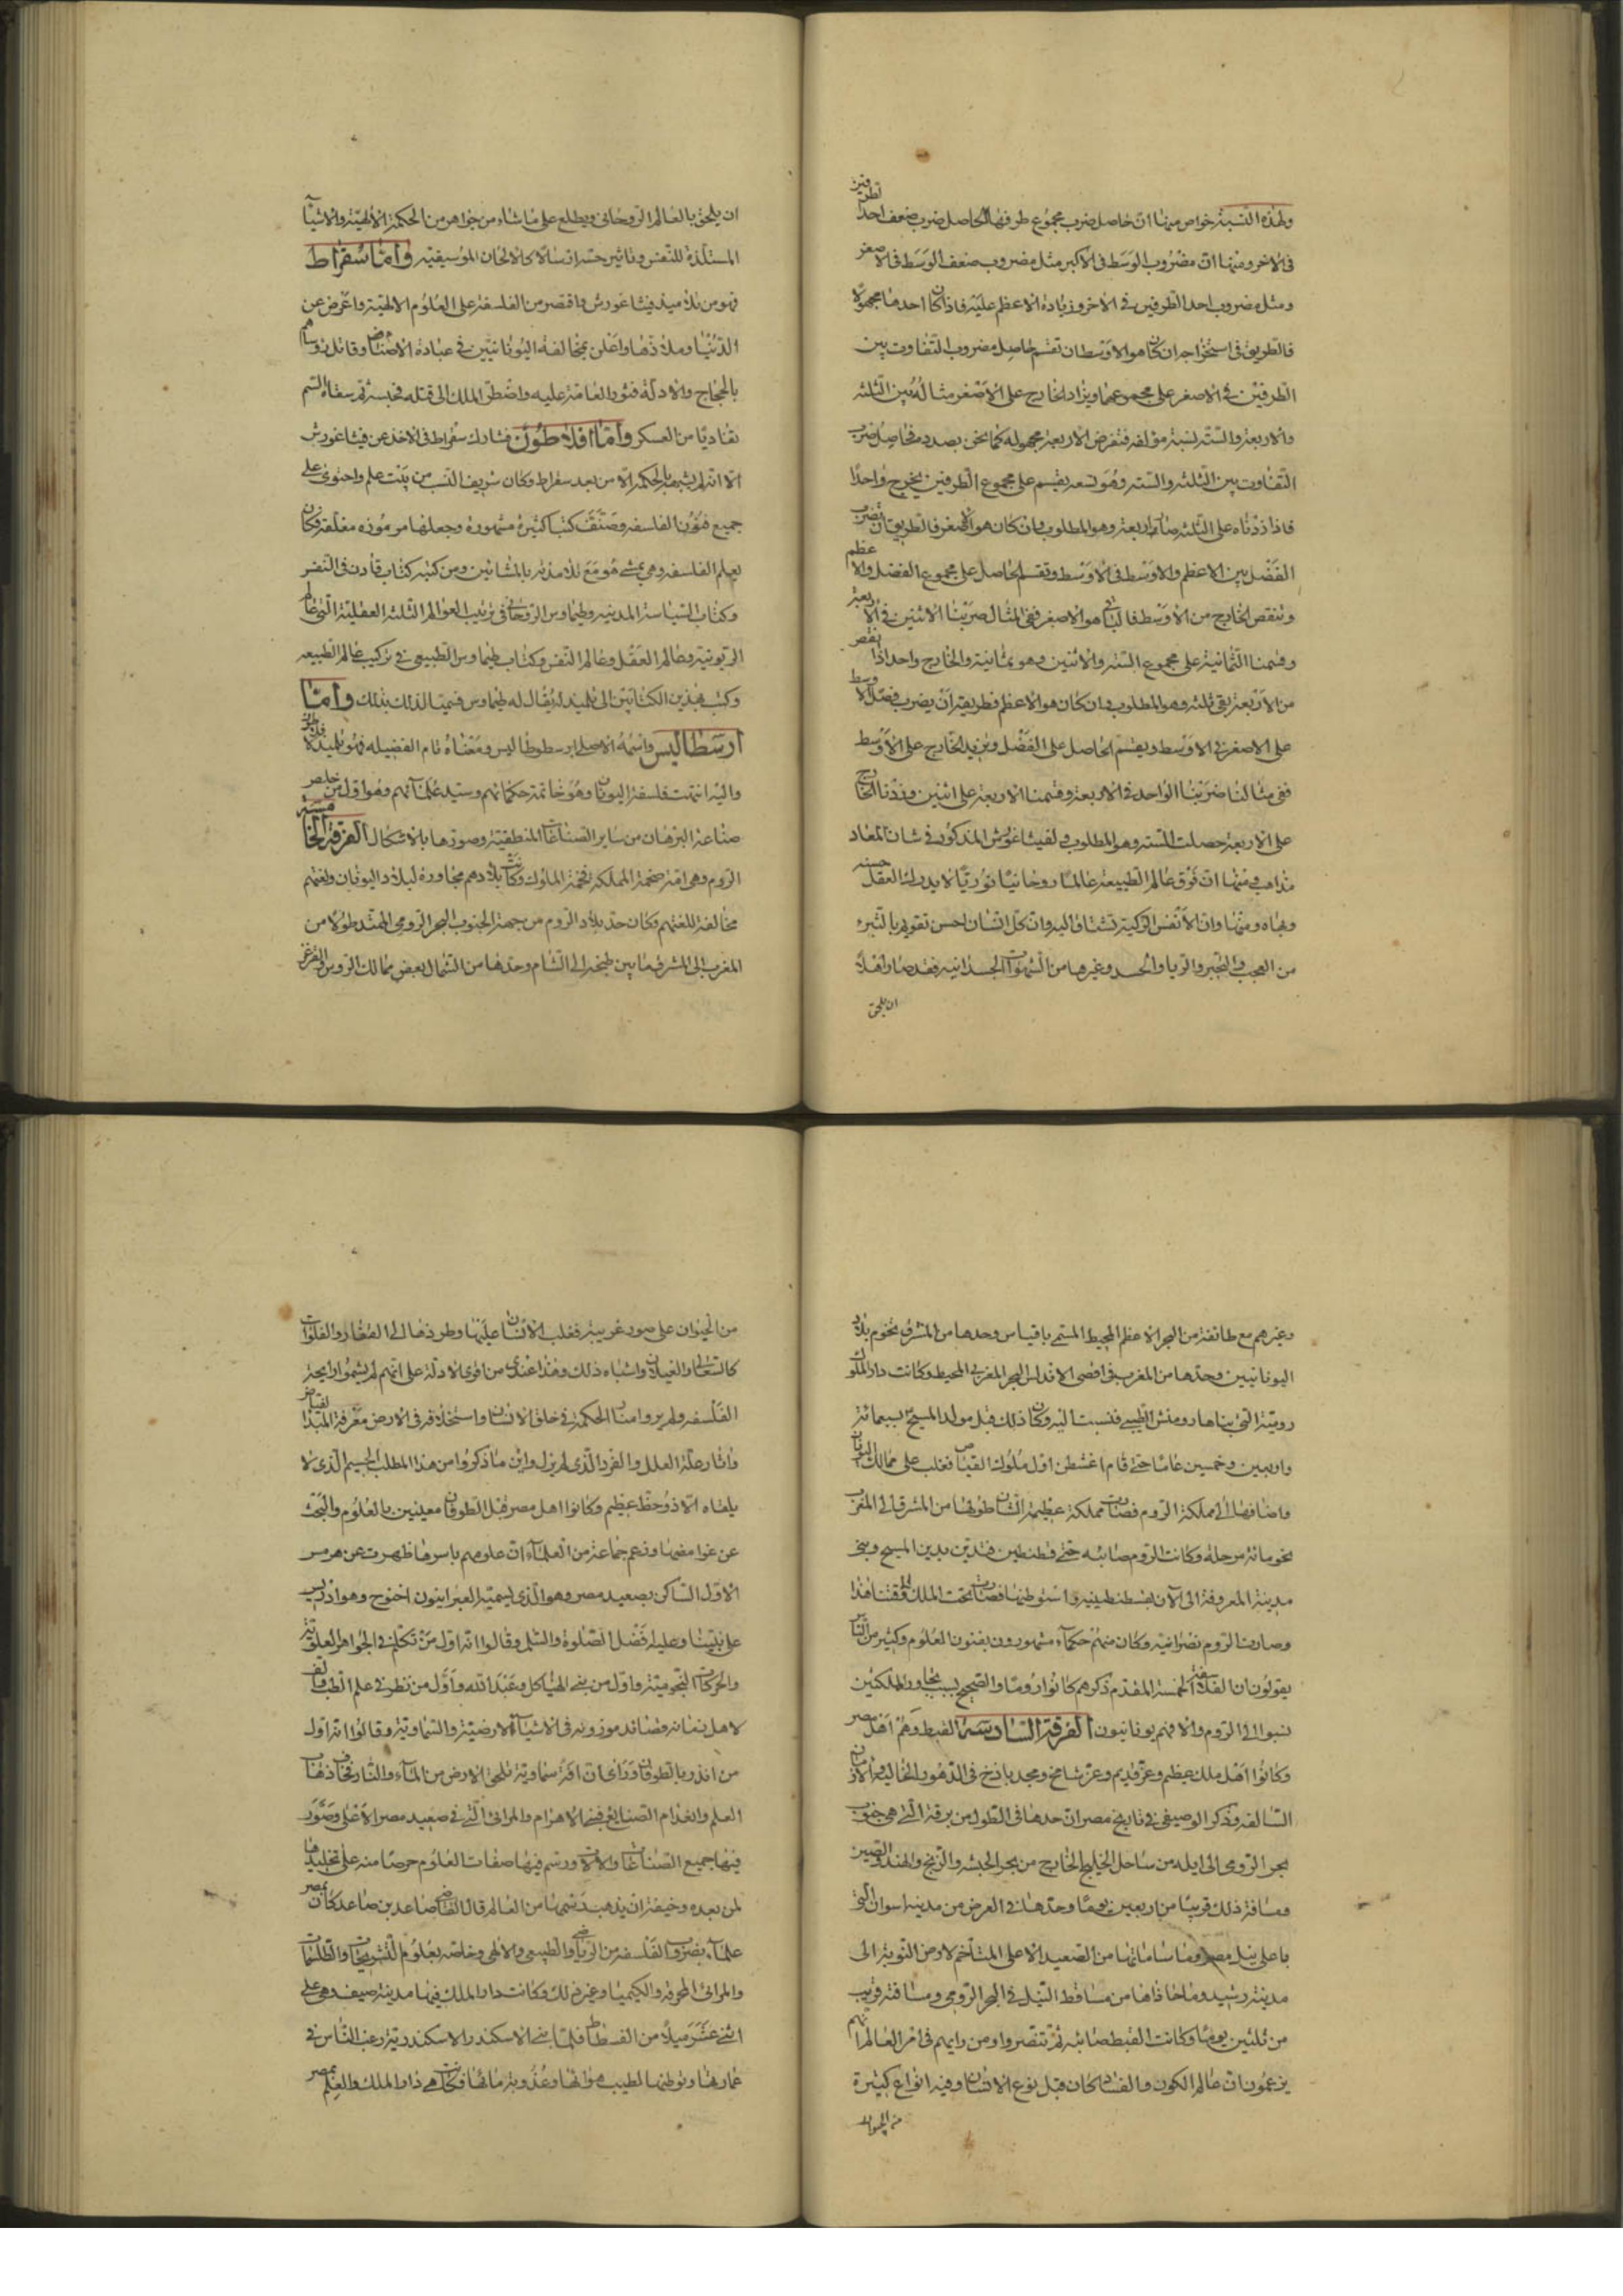 ولهذه النسبة خواص منها ان حاصل ضرب مجموع طرفيها كالحاصل ضرب ضعف احد الطرفين
فى الاخر ومنها ان مضروب الوسط فى الاكبر مثل مضروب ضعف الوسط فى الاصغر
ومثل مضروب احد الطرفين فى الاخر وزيادة الاعظم عليه فاذا كان احدها مجهولا
فالطريق فى استخراجه ان كان هو الاوسط ان تقسم حاصل مضروب التفاوت بين
الطرفين فى الاصغر على مجموعهما ويزاد الخارج على الاصغر مثاله بين الثلثه
والاربعة والستة نسبة مؤلفه فنفرض الاربعة مجهوله كما نحن بصدده فحاصل ضرب
التفاوت بين الثلثه والسته وهو تسعه يقسم على مجموع الطرفين يخرج واحدا
فاذا زدناه على الثلثه صار اربعة وهو المطلوب وان كان هو الاصغر فالطريق ان تضرب
الفضل بين الاعظم والاوسط فى الاوسط وتقسم الحاصل على مجموع الفضل والاعظم
وتنقص الخارج من الاوسط فالباقى هو الاصغر ففى المثال ضربنا الاثنين فى الاربعة
وقسمنا الثمانية على مجموع الستة والاثنين وهو ثمانية والخارج واحد اذا نقص
من الاربعة بقى ثلثه وهو المطلوب وان كان هو الاعظم فطريقه ان يضرب فضل الاوسط
على الاصغر فى الاوسط ويقسم الحاصل على الفضل ونزيد الخارج على الاوسط
ففى مثالنا ضربنا الواحد فى الاربعة وقسمنا الاربعة على اثنين وزدنا الخارج
على الاربعة حصلت الستة وهو المطلوب ولفيثاغورش المذكور فى شان المعاد
مذاهب ومنها ان فوق عالم الطبيعة عالما روحانيا نوريا لا يدرك العقل حسنه
وبهاه ومنها وان الانفس الزكية تشتاق اليه وان كل انسان احسن تقويم بالتبره
من العجب والتجبر والريا والحسد وغيرها من الشهوات الجسدانيه فقد صار اهلا
ان يلحق
ان يلحق بالعالم الروحانى ويطلع على ما شاء من جواهر من الحكمة الالهية والاشيآ
المستلذة للنفس وتاتيه حسه ارسالا كالالحان الموسيقيه واما سقراط
فهو من تلاميذ فيثاغورش واقتصر من الفلسفة على العلوم الالهية واعرض عن
الدنيا وملاذها واعلن بمخالفة اليونانيين فى عبادة الاصنام وقابل رؤساهم
بالحجاج والادلة فثور العامة عليه واضطر الملك الى قتله فحبسه ثم سقاه السم
تفاديا من العسكر واما افلاطون فشارك سقراط فى الاخذ عن فيثاغورش
الا انه لم يشتهر بالحكمة الا من بعد سقراط وكان شريف النسب من بيت علم واحتوى على
جميع فنون الفلسفه وصنف كتبا كثيرة مشهورة وجعلها مرموزه مغلقة وكان
يعلم الفلسفه وهى يمشى هو مع تلامذته بالمشائين ومن كتبه كتاب فادن فى النفس
وكتاب السياسة المدنيه وطيماوس الروحانى فى ترتيب العوالم الثلثه العقلية التى عالم
الربوبية وعالم العقل وعالم النفس وكتاب طيماوس الطبيعى فى تركيب عالم الطبيعه
وكتب هذين الكتابين الى تلميذ له يقال له طيماوس فسميتا لذلك بذلك واما
ارسطاليس واسمه الاصلى ارسطوطاليس ومعناه تام الفضيله فهو تلميذ افلاطون
واليه انتهت فلسفة اليونان وهو خاتمة حكمائهم وسيد علمآئهم وهو اول من خلص
صناعة البرهان من ساير الصناعات المنطقية وصورها بالاشكال الفرقة الخامسة
الروم وهى امة ضخمة المملكه فخمة الملوك وكانت بلادهم مجاورة لبلاد اليونان ولغتهم
مخالفة للغتهم وكان حد بلاد الروم من جهة الجنوب البحر الرومى الممتد طولا من
المغرب الى المشرق ما بين طنجه الى الشام وحدها من الشمال بعض ممالك الروس والبرغر
وغيرهم مع طائفة من البحر الاعظم المحيط المسمى باقيانس وحدها من المشرق تخوم بلاد
اليونانيين وحدها من المغرب فى اقصى الاندلس البحر المغربى المحيط وكانت دار الملك
رومية التى بناها رومنش اللطينى فنسبت اليه وكان ذلك قبل مولد المسيح بسبعمائة
واربعين وخمسين عاما حتى قام اغشطش اول ملوك القياصره فغلب على ممالك اليونان
واضافها الى مملكة الروم فصارت مملكة عظيمة الشان طولها من المشرق الى المغرب
نحو مائة مرحلة وكانت الروم صابئه حتى قسطنطين فتدين بدين المسيح وبنى
مدينة المعروفة الى الآن بقسطنطينيه واستوطنها فصارت تحت الملك الى وقتنا هذا
وصارت الروم نصرانيه وكان منهم حكمآء مشهورون بفنون العلوم وكثير من الناس
يقولون ان الفلاسفة الخمسة المقدم ذكرهم كانوا روما والصحيح بسبب تجاور المملكتين
نسبوا الى الروم والا فهم يونانيون الفرقة السادسة القبط وهم اهل مصر
وكانوا اهل ملك عظيم وعز قديم وعز شامخ ومجد باذخ فى الدهور الخاليه والازمان
السالفه وذكر الوصيفى فى تاريخ مصر ان حدها فى الطول من برقة التى هى جنوب
بحر الرومى الى ايله من ساحل الخليج الخارج من بحر الحبشه والزنج والهند والصين
ومسافة ذلك قريبا من اربعين يوما وحدها فى العرض من مدينة اسوان التى
باعلى نيل مصر وما سامتها من الصعيد الاعلى المتاخم لارض النوبة الى
مدينة رشيد وما حاذاها من مساقط النيل فى البحر الرومى ومسافته قريب
من ثلثين يوما وكانت القبط صابئه ثم تنصروا ومن رايهم فى امر العالم انهم
يزعمون ان عالم الكون والفساد كان قبل نوع الانسان وفيه انواع كثيرة
من الحيوان
من الحيوان على صور غريبة فغلب الانسان عليها وطردها الى القفار والفلوات
كالسعالى والغيلان واشباه ذلك وهذا عندى من اقوى الادلة على انهم لم يشموا رايحة
الفلسفه ولم يروا منار الحكمة فى خلق الانسان واستخلافه فى الارض معرفة المبدا
واثار علة العلل والفرد الذى لم يزل واين ما ذكروا من هذا المطلب الجسيم الذى لا
يلقاه الا ذو حظ عظيم وكانوا اهل مصر قبل الطوفان معلنين بالعلوم والبحث
عن غوامضها وزعم جماعة من العلمآء ان علومهم باسرها ظهرت عن هرمس
الاول الساكن بصعيد مصر وهو الذى يسميه العبرانيون اخنوخ وهو ادريس
على نبينا وعليه افضل الصلوة والسلم وقالوا انه اول من تكلم فى الجواهر العلوية
والحركات النجومية واول من بنى الهياكل وعبد الله واول من نظر فى علم الطب والف
لاهل زمانه قصائد موزونه فى الاشيآء الارضية والسماوية وقالوا انه اول
من انذر بالطوفان وراى ان افة سماوية تلحق الارض من المآء والنار فخاف ذهاب
العلم وانعدام الصنايع فبنى الاهرام والبرابى التى فى صعيد مصر الاعلى وصور
فيها جميع الصناعات والالات ورسم فيها صفات العلوم حرصا منه على تخليدها
لمن بعده وخيفة ان يذهب رسمها من العالم قال القاضى صاعد بن صاعد كان بمصر
علمآء بضروب الفلسفه من الرياضى والطبيعى والالهى وخاصه بعلوم النيرنجات والطلسمات
والمرائى المحرقه والكيميا وغير ذلك وكانت دار الملك فيها مدينة منيف وهى على
اثنى عشر ميلا من الفسطاط فلما بنى الاسكندر الاسكندرية رغب الناس فى
عمارتها وتوطنها لطيب هوائها وعذوبة مائها فكانت هى دار الملك والعلم بمصر